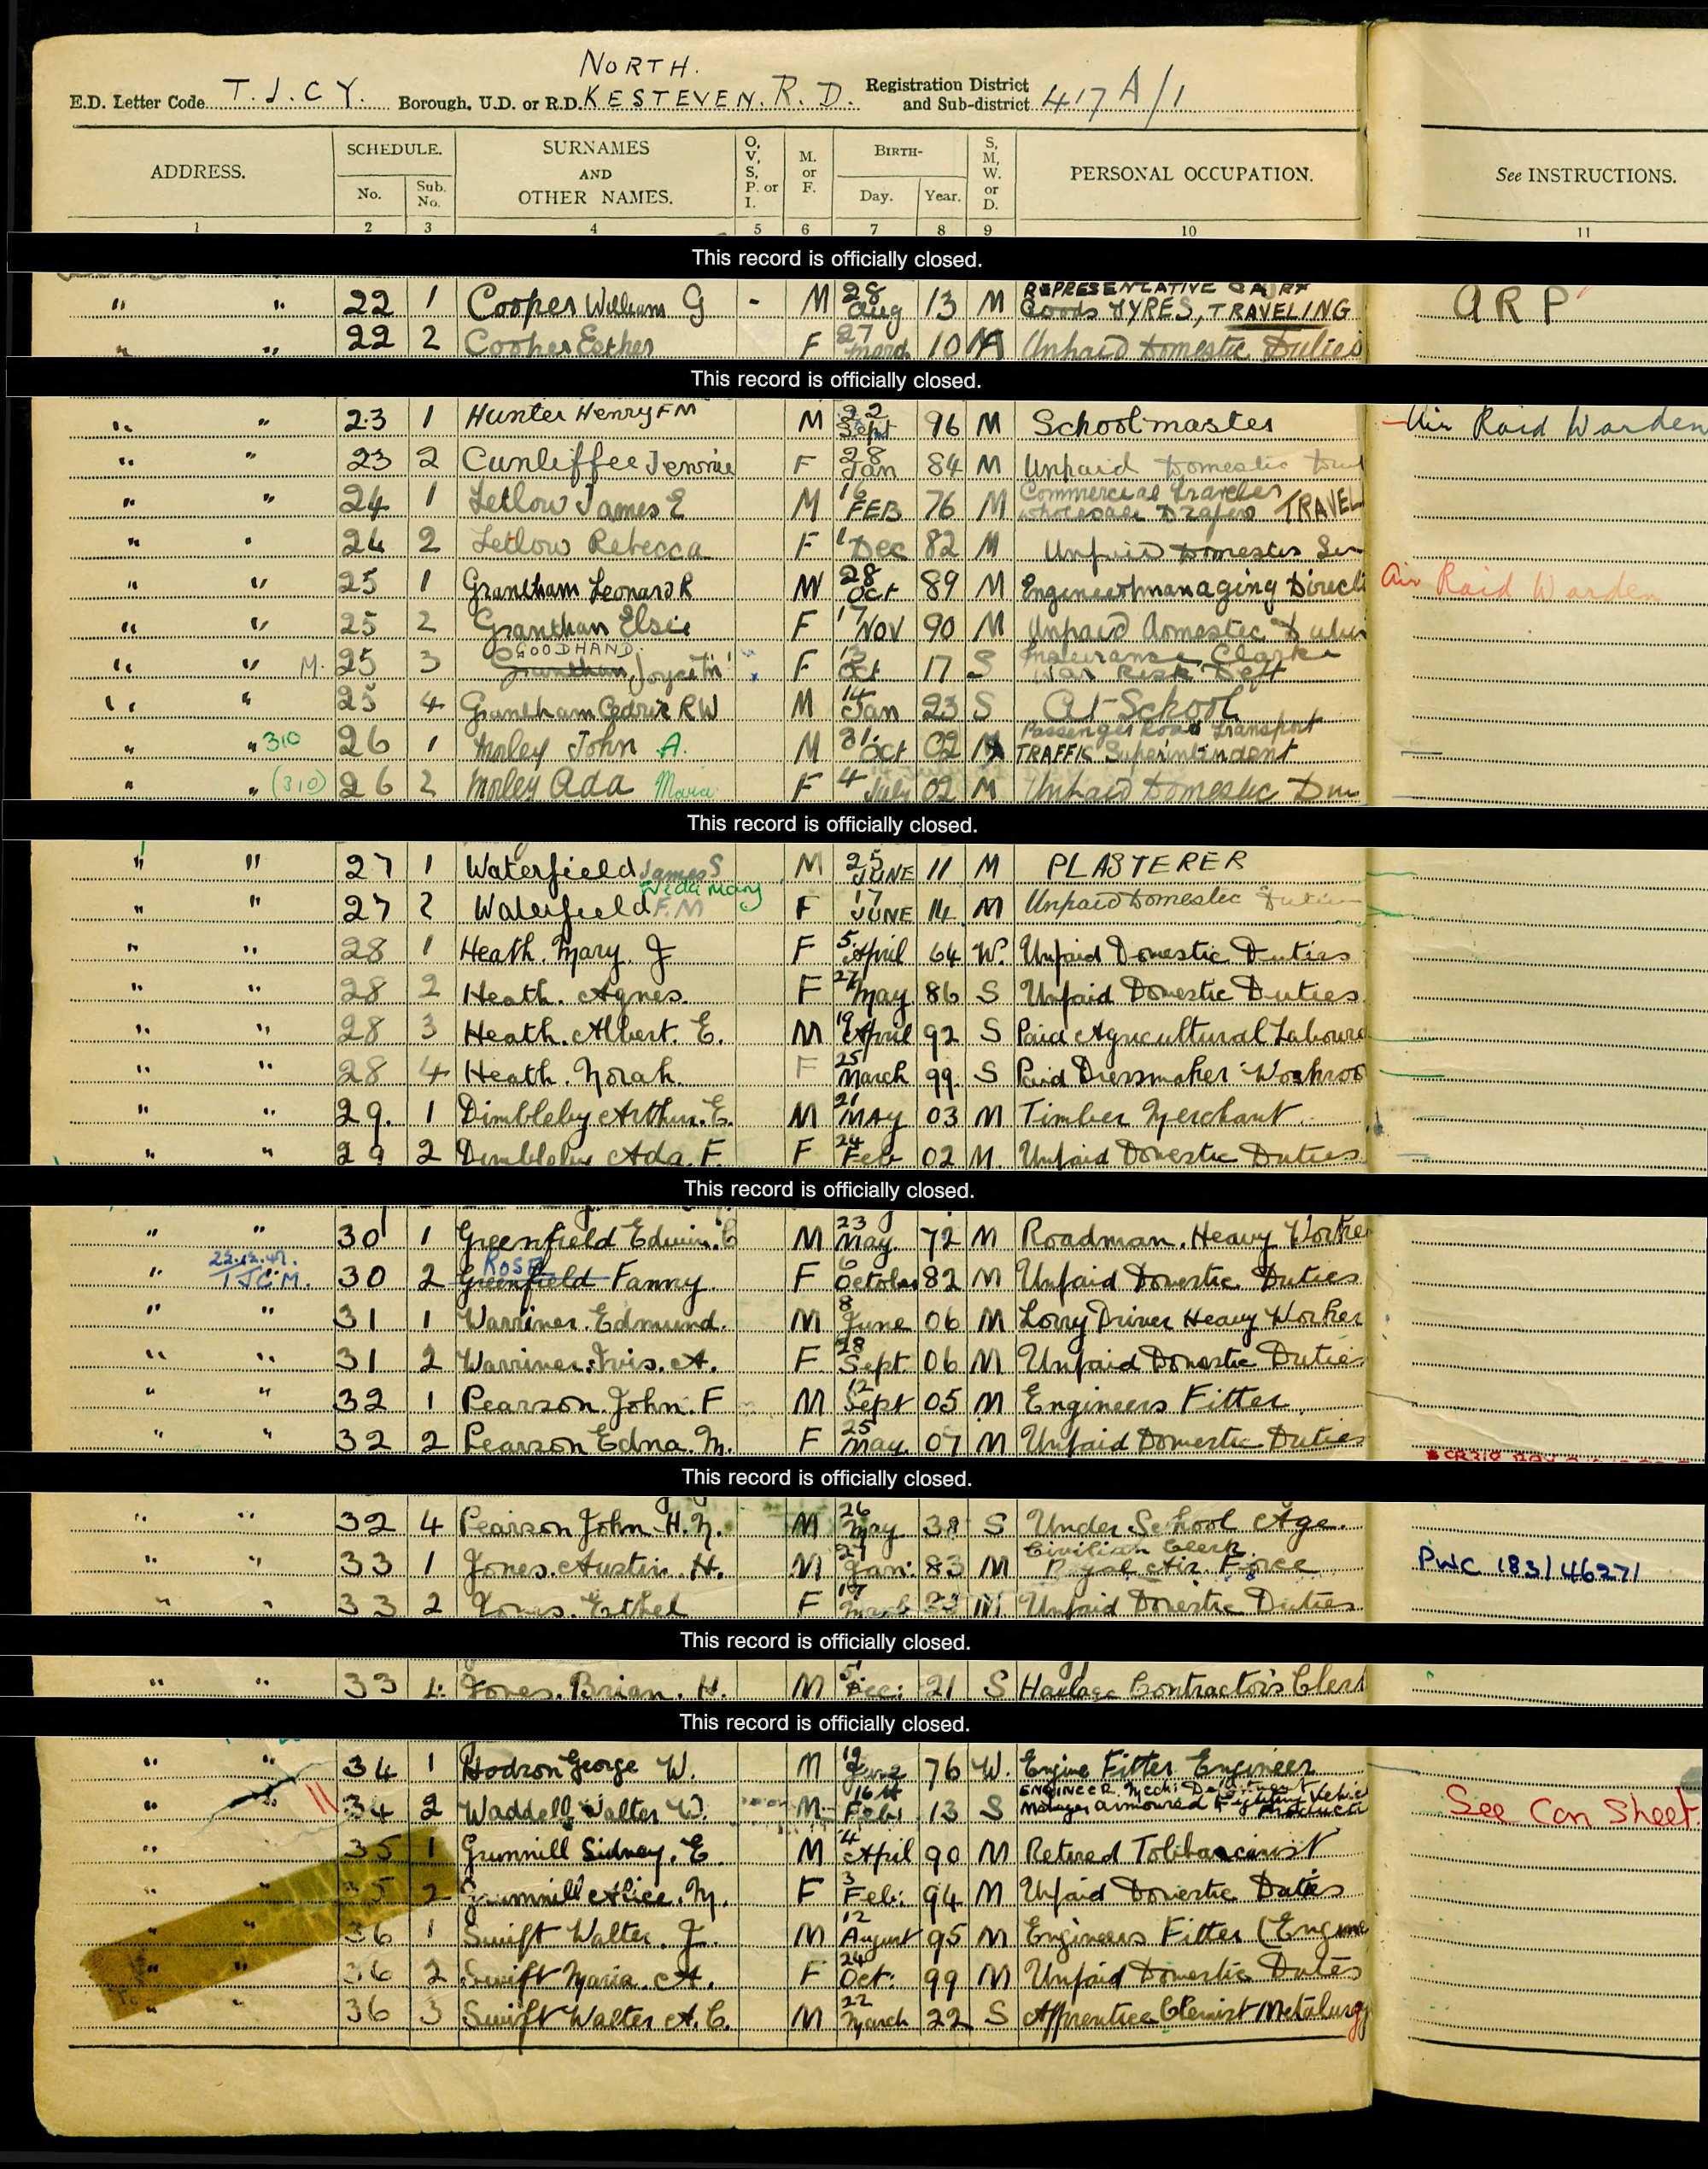 NORTH.
E.D. Letter Code T.J.C.Y. Borough, U.D. or R.D. KESTEVEN. R. D. Registration District and Sub-district 417 A/1
ADDRESS. SCHEDULE. No. Sub. No. SURNAMES AND OTHER NAMES. O, V, S, P. or I. M. or F. BIRTH- Day. Year. S, M, W. or D. PERSONAL OCCUPATION. See INSTRUCTIONS.
1 2 3 4 5 6 7 8 9 10 11
This record is officially closed.
" " 22 1 Cooper William G - M 28 Aug 13 M REPRESENTATIVE Goods TYRES, TRAVELING ARP
" " 22 2 Cooper Esther F 27 10 M Unpaid Domestic Duties
This record is officially closed.
" " 23 1 Hunter Henry F M M 22 Sept 96 M Schoolmaster Air Raid Warden
" " 23 2 Cunliffee Jennie F 28 Jan 84 M Unpaid Domestic
" " 24 1 Letlow James E M 16 FEB 76 M Commercial Traveller Wholesale Drapers TRAVEL
" " 24 2 Letlow Rebecca F 1 Dec 82 M Unpaid Domestic
" " 25 1 Grantham Leonard R M 28 Oct 89 M Engineer managing Direct Air Raid Warden
" " 25 2 Grantham Elsie F 17 Nov 90 M Unpaid Domestic
" " M. 25 3 GOODHAND. Grantham Joyce M F 13 Oct 17 S Insurance Clerk War Risk Dept
" " 25 4 Grantham Cedric R W M 14 Jan 23 S At School
" " 310 26 1 Morley John A. M 31 Oct 02 M Passenger Road Transport TRAFFIC Superintendent
" " (310) 26 2 Morley Ada Maria F 4 July 02 M Unpaid Domestic
This record is officially closed.
" " 27 1 Waterfield James S M 25 JUNE 11 M PLASTERER
" " 27 2 Waterfield F. M Mary F 17 JUNE 14 M Unpaid Domestic Duties
" " 28 1 Heath. Mary. J F 5 April 64 W. Unpaid Domestic Duties
" " 28 2 Heath. Agnes. F 27 May 86 S Unpaid Domestic Duties
" " 28 3 Heath. Albert. E. M 19 April 92 S Paid Agricultural Laboure
" " 28 4 Heath. Norah. F 25 March 99 S Paid Dressmaker Workroo
" " 29. 1 Dimbleby Arthur. E. M 21 MAY 03 M Timber Merchant.
" " 29 2 Dimbleby Ada. F. F 24 Feb 02 M. Unpaid Domestic Duties
This record is officially closed.
" " 30 1 Greenfield Edwin. C M 23 May. 72 M Roadman. Heavy Worker
" 22.12.41. T.J.C.M. 30 2 ROSE Greenfield Fanny F 6 October 82 M Unpaid Domestic Duties
" " 31 1 Warriner. Edmund. M 8 June 06 M Lorry Driver Heavy Worker
" " 31 2 Warriner. Ivis. A. F 28 Sept. 06 M Unpaid Domestic Duties
" " 32 1 Pearson. John. F M 12 Sept 05 M Engineers Fitter
" " 32 2 Pearson Edna. M. F 25 May. 07 M Unpaid Domestic Duties
This record is officially closed.
" " 32 4 Pearson John. H. N. M 26 May 38 S Under School Age.
" " 33 1 Jones. Austin. H. M Jan: 83 M Civilian Clerk Royal Air Force PWC 183/46271
" " 33 2 Jones. Ethel F 17 M Unpaid Domestic Duties
This record is officially closed.
" " 33 4 Jones. Brian. H. M 5 Dec: 21 S Haulage Contractors Cler
This record is officially closed.
" " 34 1 Hodson George W. M 19 June 76 W. Engine Fitter Engineer
" 34 2 Waddell Walter W. M 16 Feb 13 S ENGINEER Mech: Manager armoured Fighting Vehic Producti See Con Sheet.
" " 35 1 Grummill Sidney. E M 4 April 90 M Retired Tobbaccanist
" " 35 2 Grummill Alice. M. F 3 Feb: 94 M Unpaid Domestic Duties
" " 36 1 Swift Walter. J. M 12 August 95 M Engineers Fitter (Engine
" " 36 2 Swift Maria. A. F 24 Oct: 99 M Unpaid Domestic Duties
" " 36 3 Swift Walter A. C. M 22 March 22 S Apprentice Chemist Metalurgy